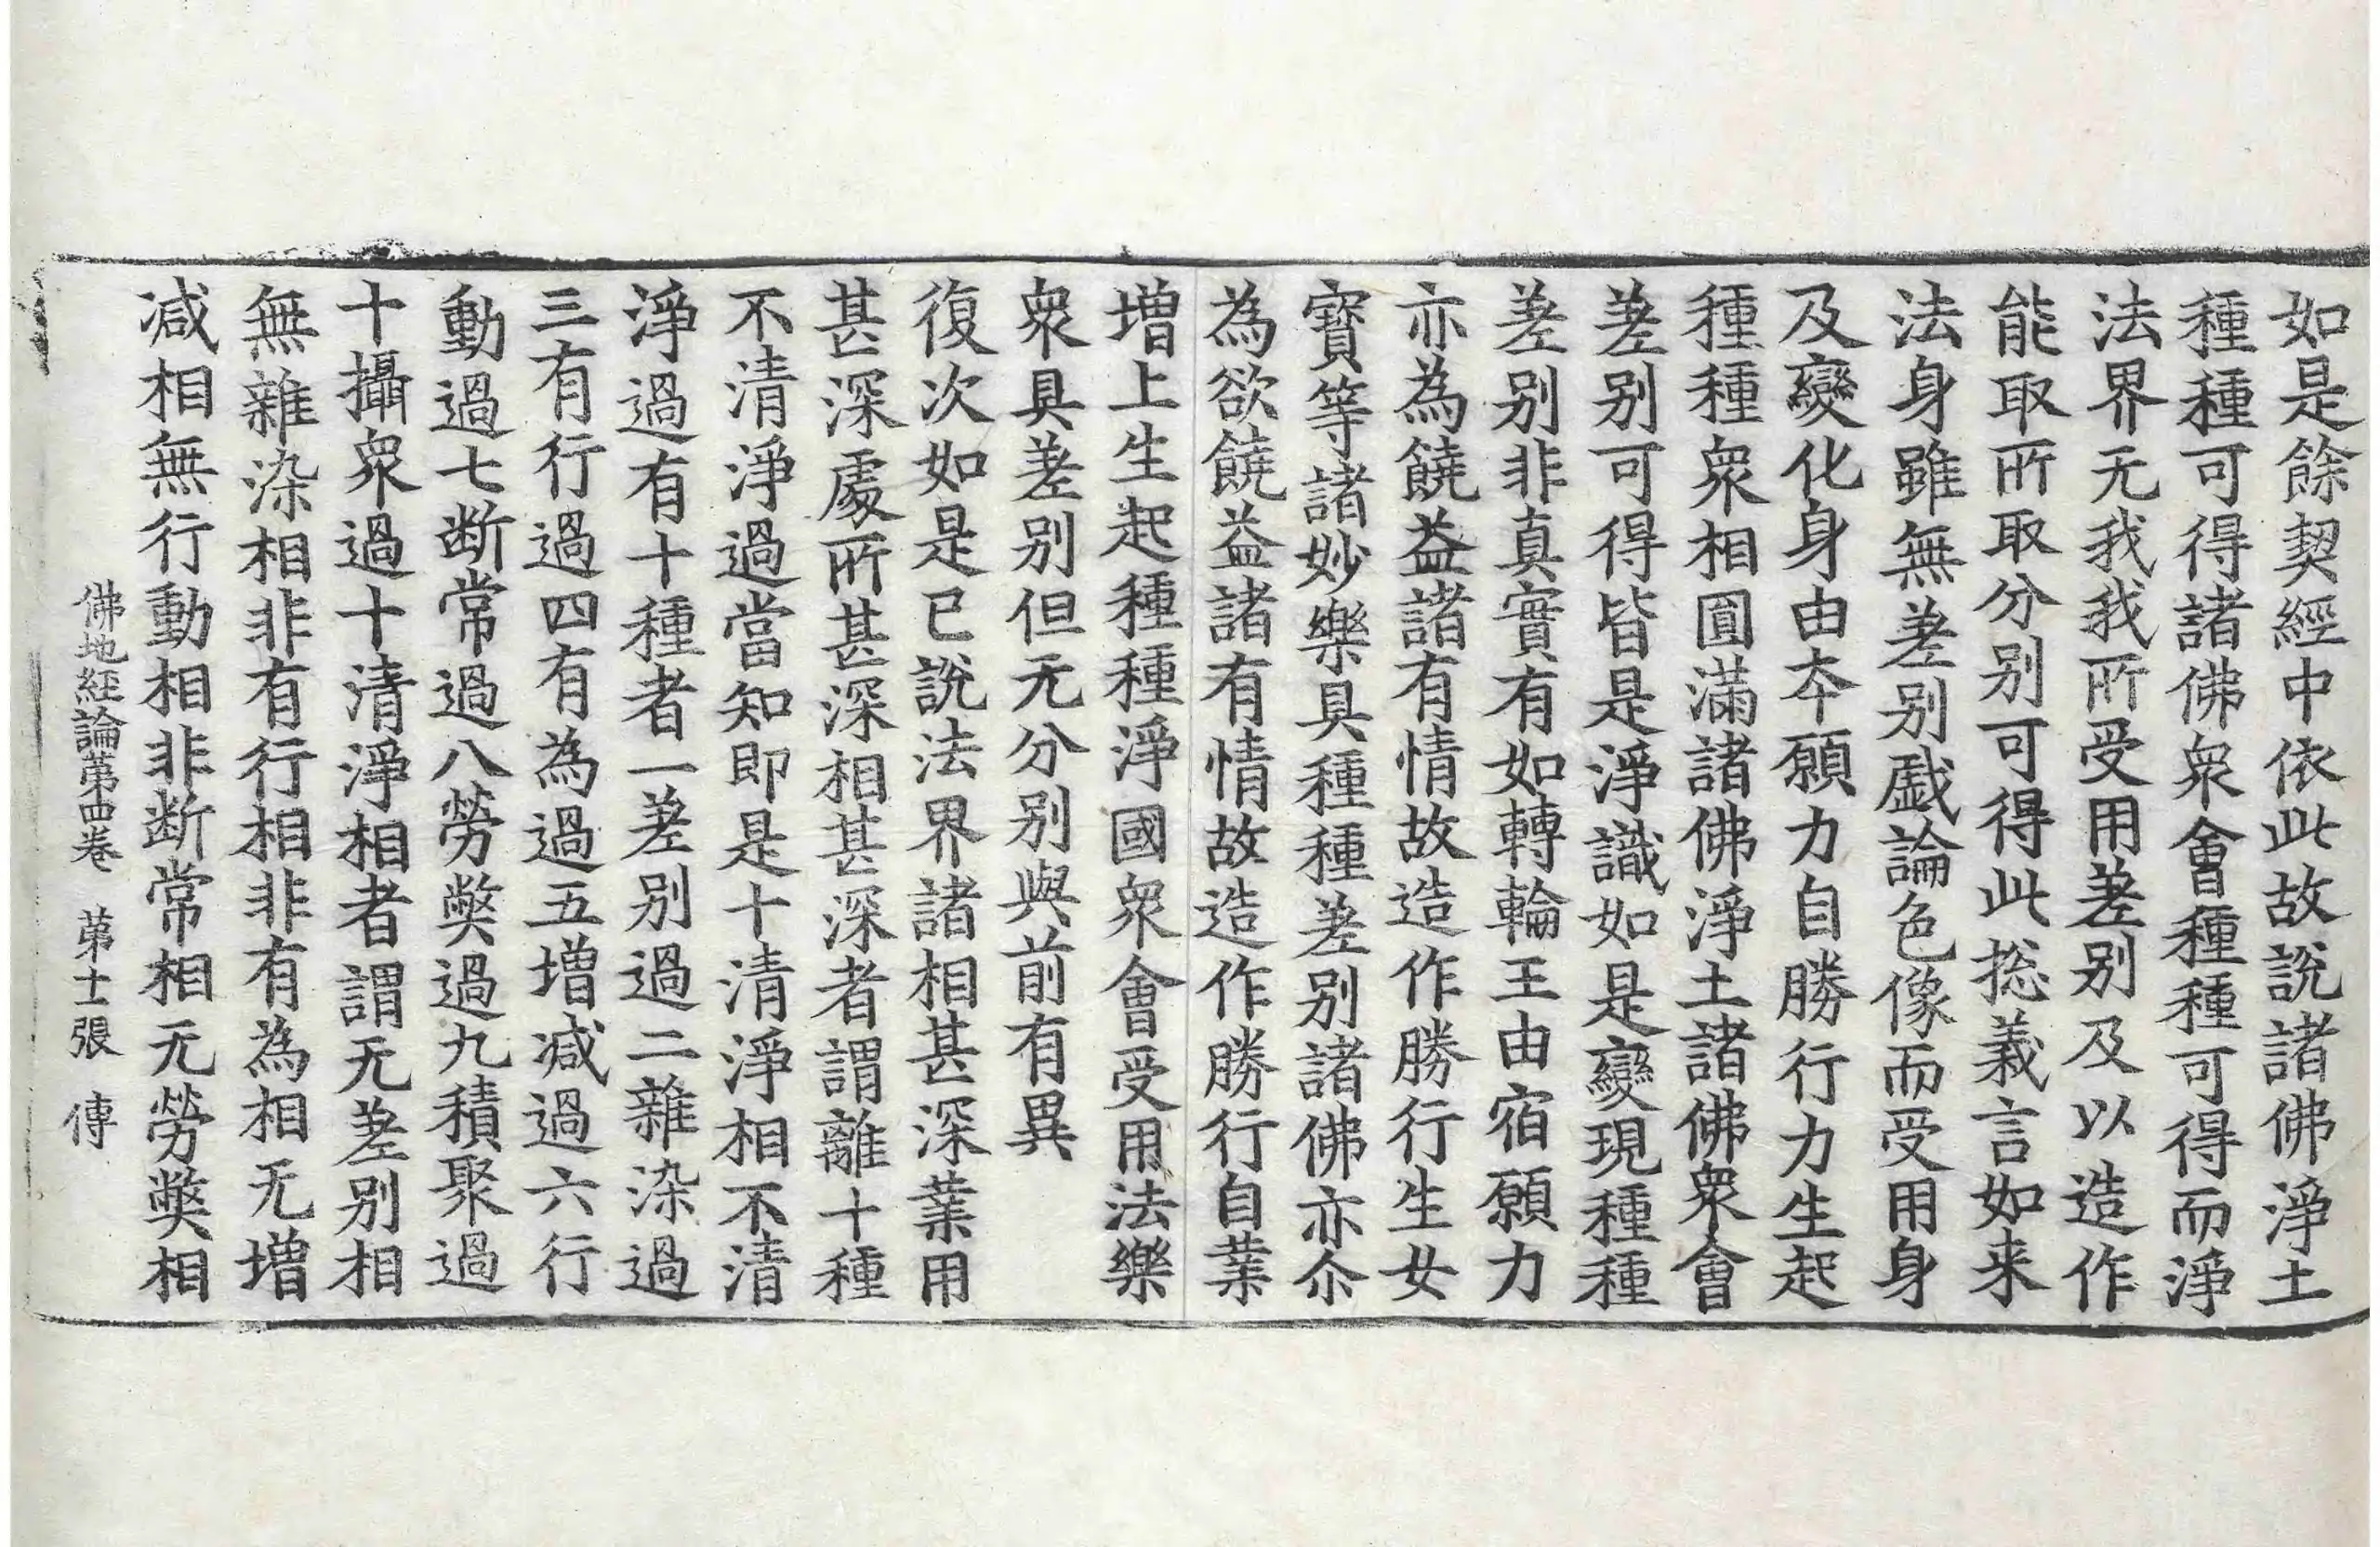 如是餘契經中依此故說諸佛淨土
種種可得諸佛衆會種種可得而淨
法界无我我所受用差别及以造作
能取所取分别可得此捴義言如来
法身雖無差别戱論色像而受用身
及變化身由夲願力自勝行力生起
種種衆相圓滿諸佛淨土諸佛衆會
差别可得皆是淨識如是變現種種
差别非真實有如轉輪王由宿願力
亦為饒益諸有情故造作勝行生女
寶等諸妙樂具種種差别諸佛亦尒
為欲饒益諸有情故造作勝行自業
增上生起種種淨國衆會受用法樂
衆具差别但无分别與前有異
復次如是已說法界諸相甚深業用
甚深處所甚深相甚深者謂離十種
不清淨過當知即是十清淨相不清
淨過有十種者一差别過二雜染過
三有行過四有為過五增減過六行
動過七断常過八勞弊過九積聚過
十攝衆過十清淨相者謂无差别相
無雜染相非有行相非有為相无增
減相無行動相非断常相无勞弊相
佛地経論苐四卷 苐十張 傳